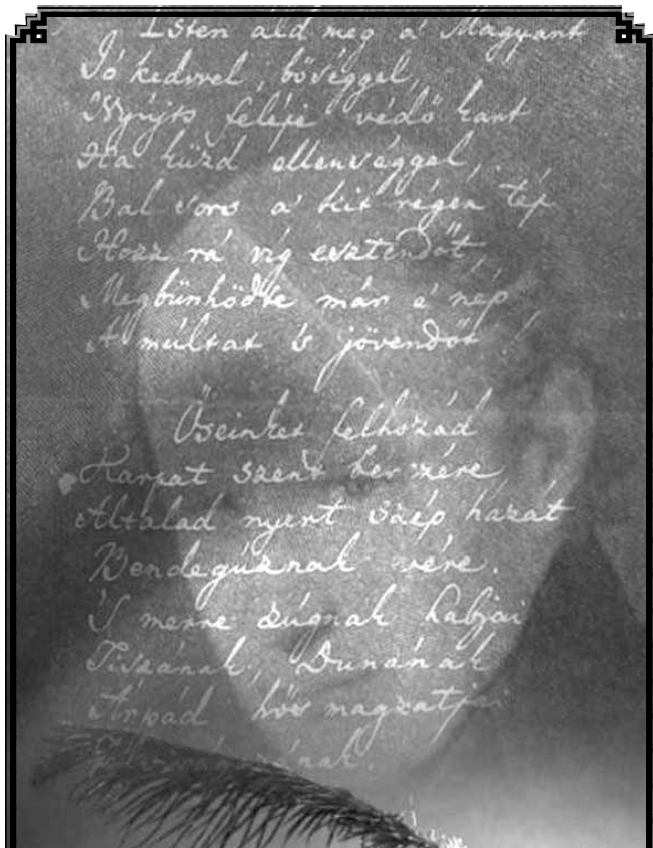 Isten áld meg a' Magyart
Jó kedvvel, bőséggel,
Nyújts feléje védő kart
Ha küzd ellenséggel,
Bal sors a' kit régen tép
Hozz rá víg esztendőt,
Megbűnhödte már e' nép
A' múltat 's jövendőt!
Őseinket felhozád
Kárpát szent bérczére
Általad nyert szép hazát
Bendegúznak vére.
'S merre zúgnak habjai
Tiszának, Dunának
Árpád hős magzatjai